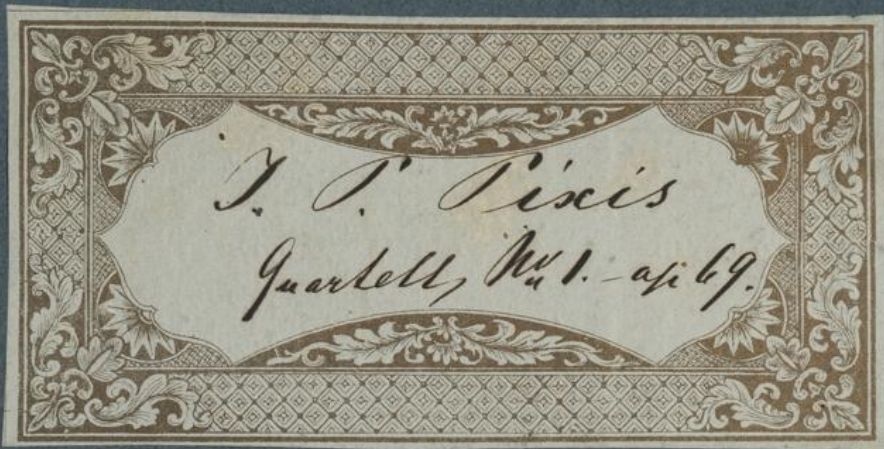 J. P. Pixis
Quartett, No 1. - op 69.